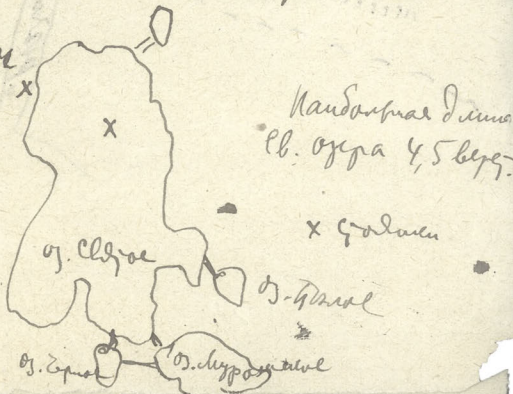 Наибольшая длина
Св. озера 4,5 верст.
х стоянки
оз. Святое
оз. Белое
оз. Черное
оз. Муромское